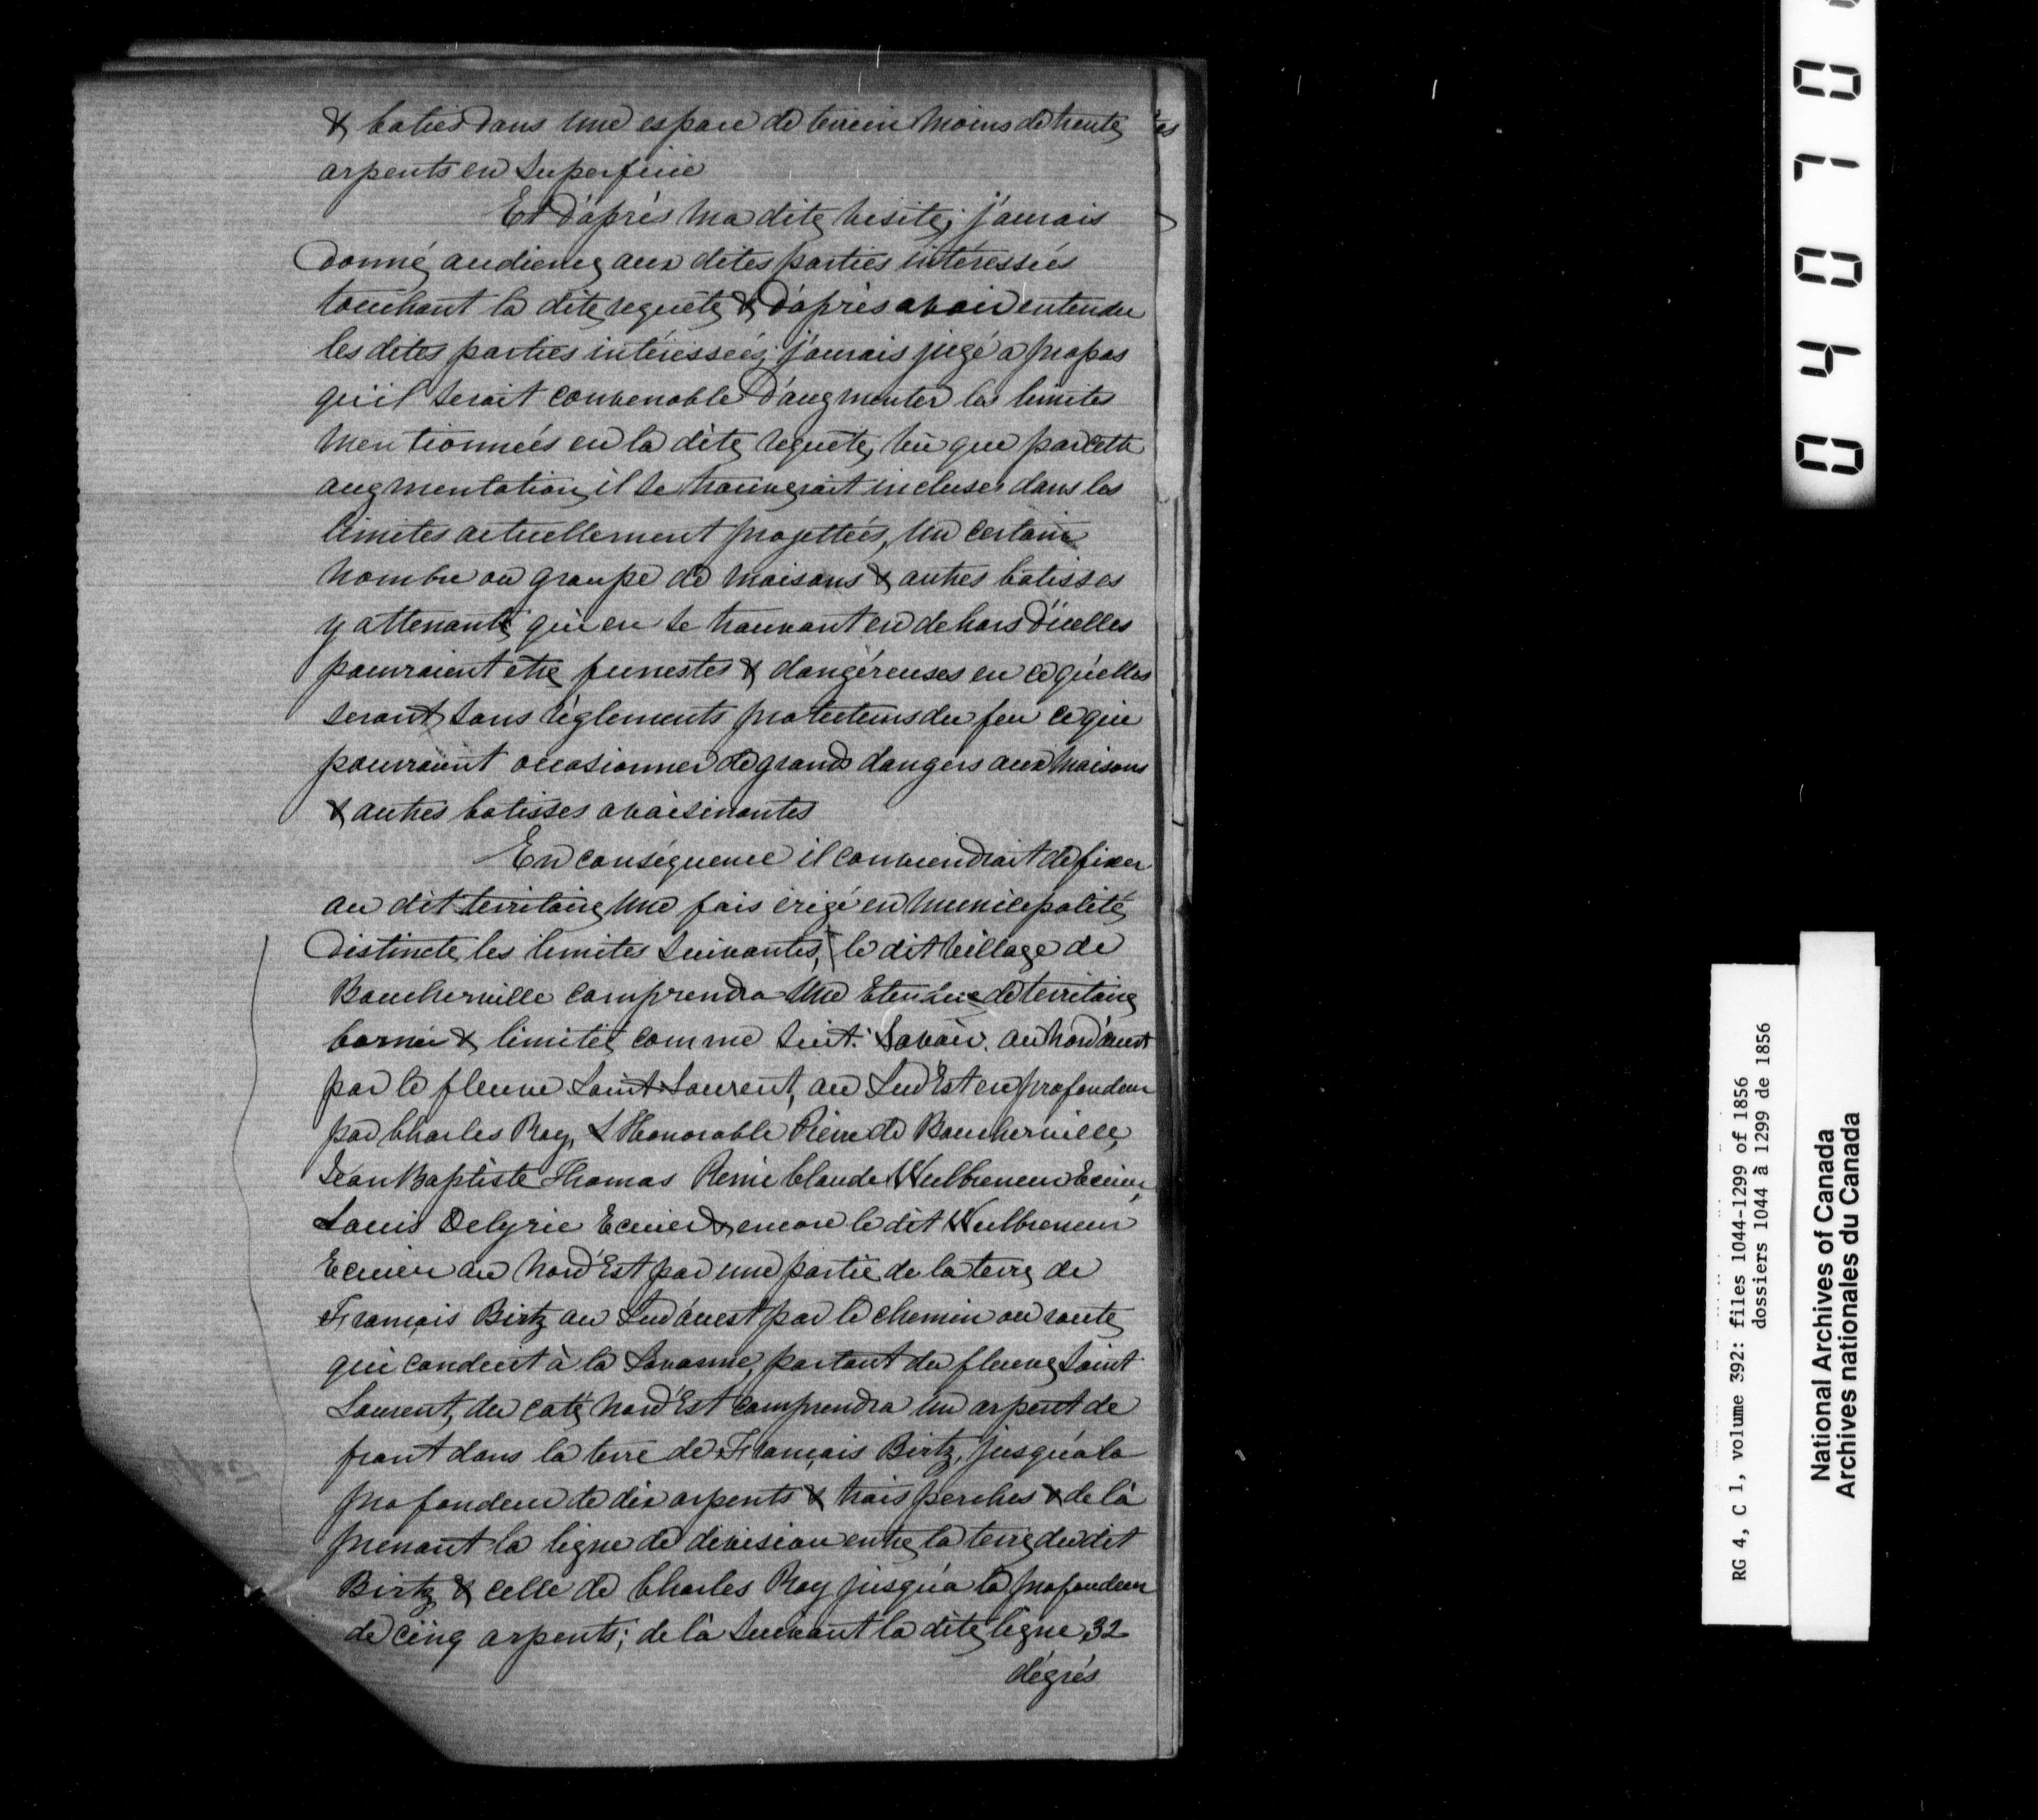 & baties dans une espace de terrein moins de trente
arpents en Superficie
Et d'après ma dite visite, j'aurais
donné audience aux dites parties intéressées
touchant la dite requête & d'après avoir entendu
les dites parties intéressées, j'aurais jugé a propos
qu'il serait convenable d'augmenter les limites
mentionnées en la dite requête, vu que par cette
augmentation, il se trouverait incluses dans les
limites actuellement projettées, un certain
nombre ou groupe de maisons & autres batisses
y attenante qui en se trouvant en dehors d'icelles
pourraient etre funestes & dangéreuses en ce qu'elles
seront sans règlements protecteurs du feu ce qui
pourraient occasionner de grands dangers aux maisons
& autres batisses avoisinantes
En conséquence il conviendrait de fixer
au dit territoire une fois érigé en municipalité
distincte, les limites suivantes, le dit village de
Boucherville comprendra une Etendue de territoire
bornée & limitée comme suit: Savoir. au nord'ouest
par le fleuve Saint-Laurent, au Sud'Est en profondeur
par Charles Roy, L'Honorable Pierre de Boucherville,
Jean Baptiste Thomas René Claude Weilbrenner Ecuier,
Louis Delgrie Ecuier & encore le dit Weilbrenner
Ecuier au nord'Est par une partie de la terre de
François Birtz au Sud'ouest par le chemin ou route
qui conduit à la Savanne, partant du fleuve Saint
Laurent, du coté nord'Est comprendra un arpent de
front dans la terre de François Birtz, jusqu'a la
profondeur de dix arpents & trois perches & de là
prenant la ligne de division entre la terre du dit
Birtz & celle de Charles Roy jusqu'a la profondeur
de cinq arpents; de là suivant la dite ligne, 32
dégrés
es
04070
RG 4, C 1, volume 392: files 1044-1299 of 1856
dossiers 1044 à 1299 de 1856
National Archives of Canada
Archives nationales du Canada